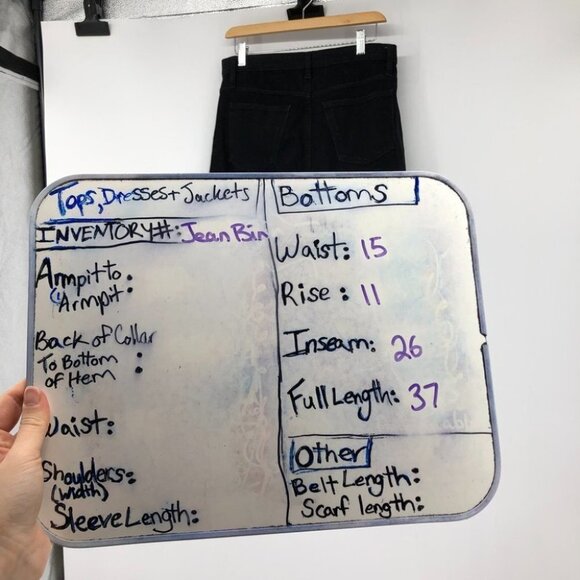 Tops, Dresses + Jackets
INVENTORY#: Jean Bin
Armpit to
Armpit:
Back of Collar
To Bottom
of Hem :
Waist:
Shoulders:
(width)
Sleeve Length:
Bottoms
Waist: 15
Rise : 11
Inseam: 26
Full Length: 37
Other
Belt Length:
Scarf length: